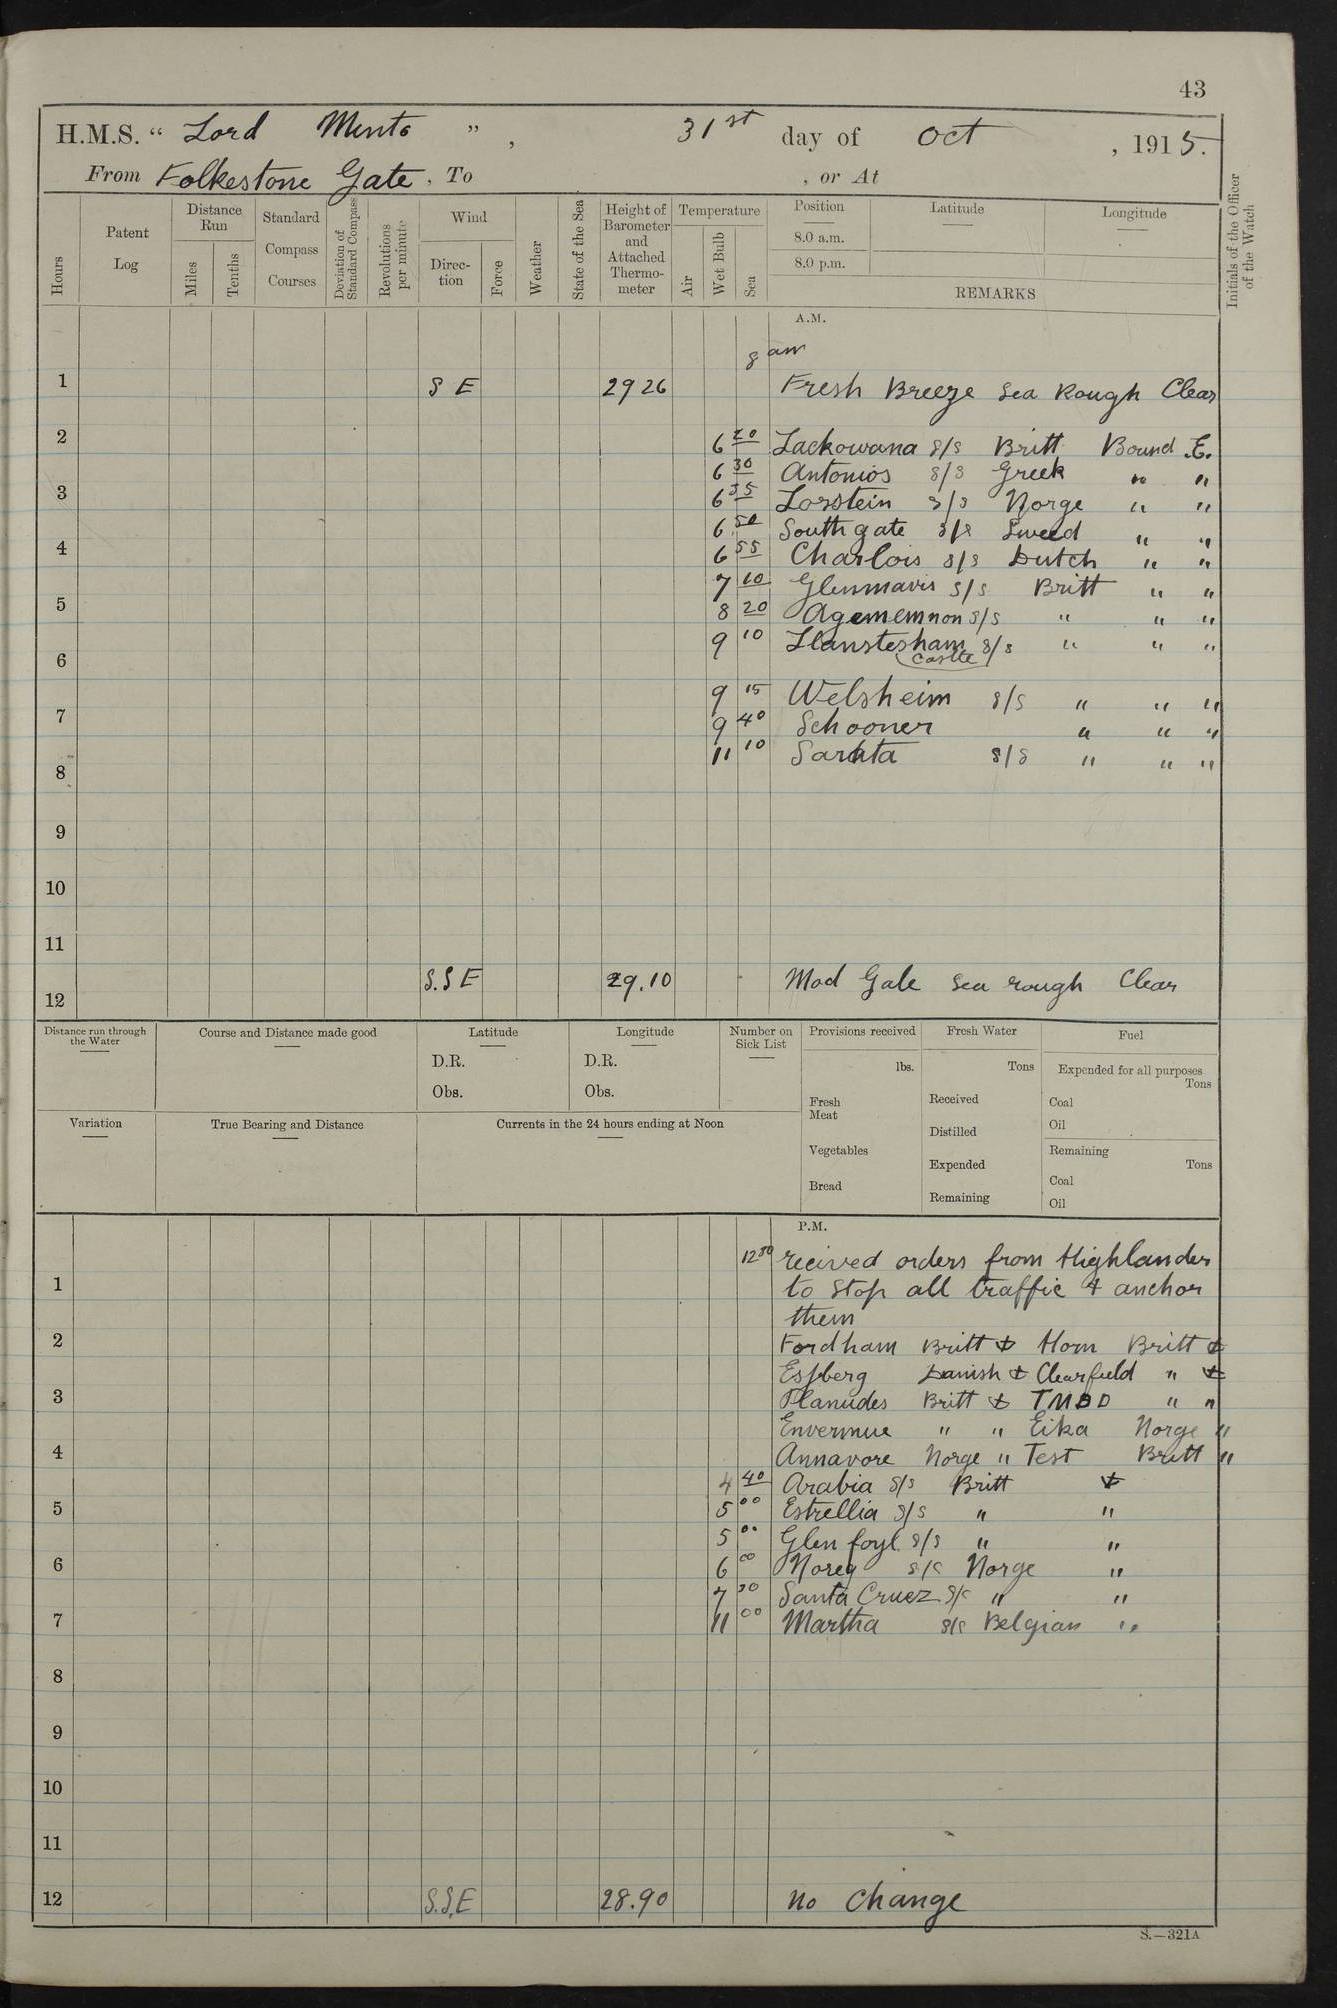 43
H.M.S. “ Lord Minto ” , 31st day of Oct , 1915.
From Folkestone Gate , To , or At
Hours
Patent Log
Distance Run
Miles
Tenths
Standard Compass Courses
Deviation of Standard Compass
Revolutions per minute
Wind
Direction
Force
Weather
State of the Sea
Height of Barometer and Attached Thermometer
Temperature
Air
Wet Bulb
Sea
Position
8.0 a.m.
8.0 p.m.
Latitude
Longitude
REMARKS
Initials of the Officer of the Watch
A.M.
8 am
1 S E 29 26 Fresh Breeze Sea Rough Clear
2 6 20 Lackowana s/s Britt Bound E.
6 30 Antonios s/s Greek " "
3 6 35 Losstein s/s Norge " "
6 50 Southgate s/s Sweed " "
4 6 55 Charlois s/s Dutch " "
7 10 Glenmavis s/s Britt " "
5 8 20 Agememnon s/s " " "
9 10 Llanstesham s/s " " "
6 Castle
9 15 Welsheim s/s " " "
7 9 40 Schooner " " "
11 10 s/s " " "
8
9
10
11
12 S.S E 29.10 Mod Gale Sea rough Clear
Distance run through the Water
Course and Distance made good
Latitude
D.R.
Obs.
Longitude
D.R.
Obs.
Number on Sick List
Provisions received
lbs.
Fresh Meat
Vegetables
Bread
Fresh Water
Tons
Received
Distilled
Expended
Remaining
Fuel
Expended for all purposes
Tons
Coal
Oil
Remaining
Tons
Coal
Oil
Variation
True Bearing and Distance
Currents in the 24 hours ending at Noon
P.M.
12 30 recived orders from Highlander
1 to stop all traffic & anchor
them
2 Fordham Britt Horn Britt
Esfberg Danish Clearfield "
3 Planudes Britt TMDD " "
Envermue " " Eika Norge "
4 Annavore Norge " Test Britt "
4 40 Arabia s/s Britt
5 5 00 Estrellia s/s " "
5 00 Glen foyl s/s " "
6 6 00 Noreg s/s Norge "
7 30 Santa Cruez s/s " "
7 11 00 Martha s/s Belgian "
8
9
10
11
12 S.S.E 28.90 No change
S.—321A